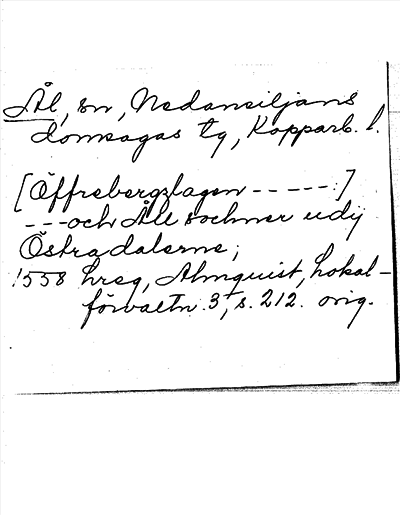 Ål, sn, Nedansiljans
domsagas tg, Kopparb. l.
[Öffrebergzlagen -----:]
---och Åll sochner udij
Östradalerne;
1558 hreg, Almquist, Lokal-
förvaltn. 3, s. 212. orig.